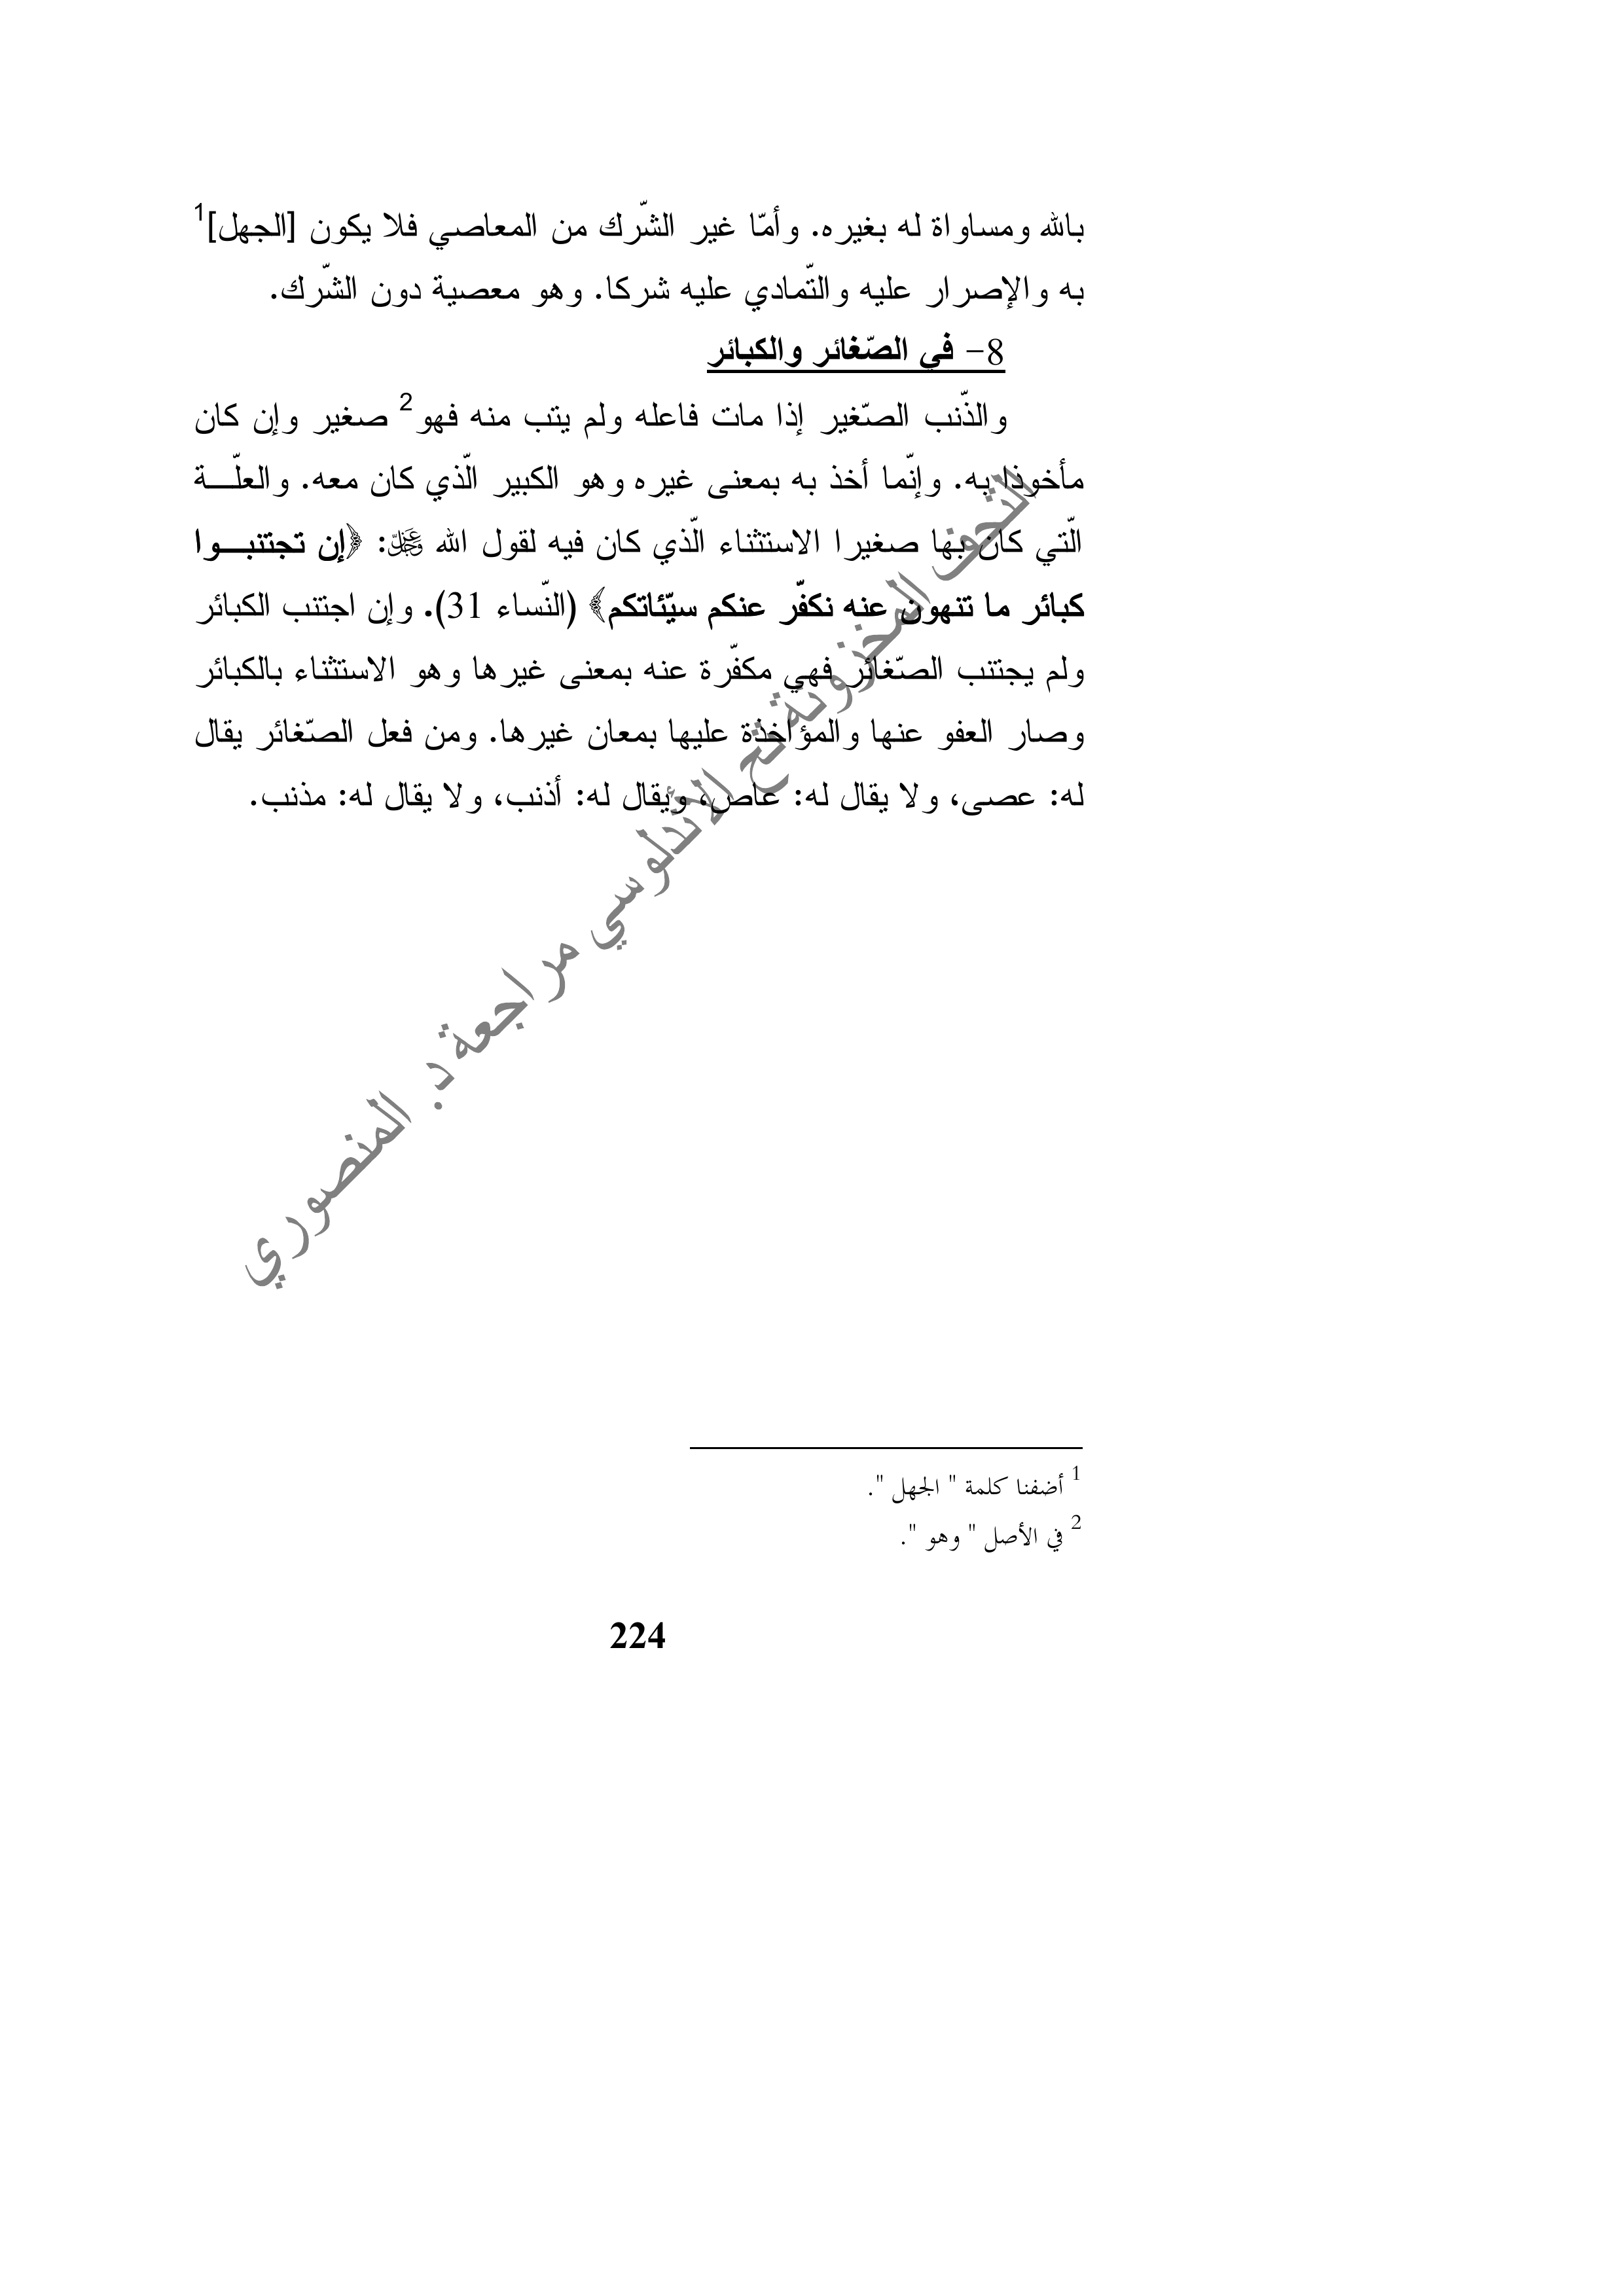 بالله ومساواة له بغيره. وأمّا غير الشّرك من المعاصي فلا يكون [الجهل]1
به والإصرار عليه والتّمادي عليه شركا. وهو معصية دون الشّرك.
8- في الصّغائر والكبائر
والذّنب الصّغير إذا مات فاعله ولم يتب منه فهو2 صغير وإن كان
مأخوذا به. وإنّما أخذ به بمعنى غيره وهو الكبير الّذي كان معه. والعلّـــة
الّتي كان بها صغيرا الاستثناء الّذي كان فيه لقول الله عزّ وجلّ: ﴿إن تجتنبـــوا
كبائر ما تنهون عنه نكفّر عنكم سيّئاتكم﴾ (النّساء 31). وإن اجتنب الكبائر
ولم يجتنب الصّغائر فهي مكفّرة عنه بمعنى غيرها وهو الاستثناء بالكبائر
وصار العفو عنها والمؤاخذة عليها بمعان غيرها. ومن فعل الصّغائر يقال
له: عصى، ولا يقال له: عاص، ويقال له: أذنب، ولا يقال له: مذنب.
التحف المخزونة تح الأندلوسي مراجعة د. المنصوري
1 أضفنا كلمة " الجهل ".
2 في الأصل " وهو ".
224